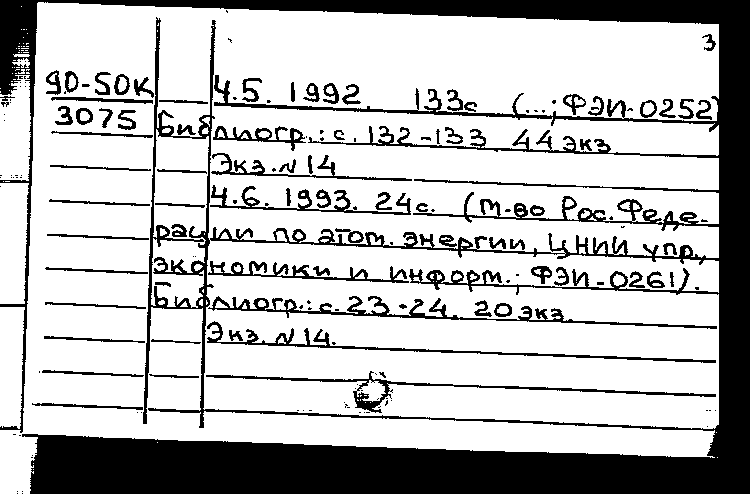 3
90-50К Ч.5. 1992. 133с (...; ФЭИ-0252)
3075 Библиогр.: с. 132-133 44 экз
Экз. N 14
Ч.6. 1993. 24с. (М-во Рос. Феде-
рации по атом. энергии, ЦНИИ упр.,
экономики и информ.; ФЭИ-0261).
Библиогр.: с. 23-24. 20 экз.
Экз. N 14.